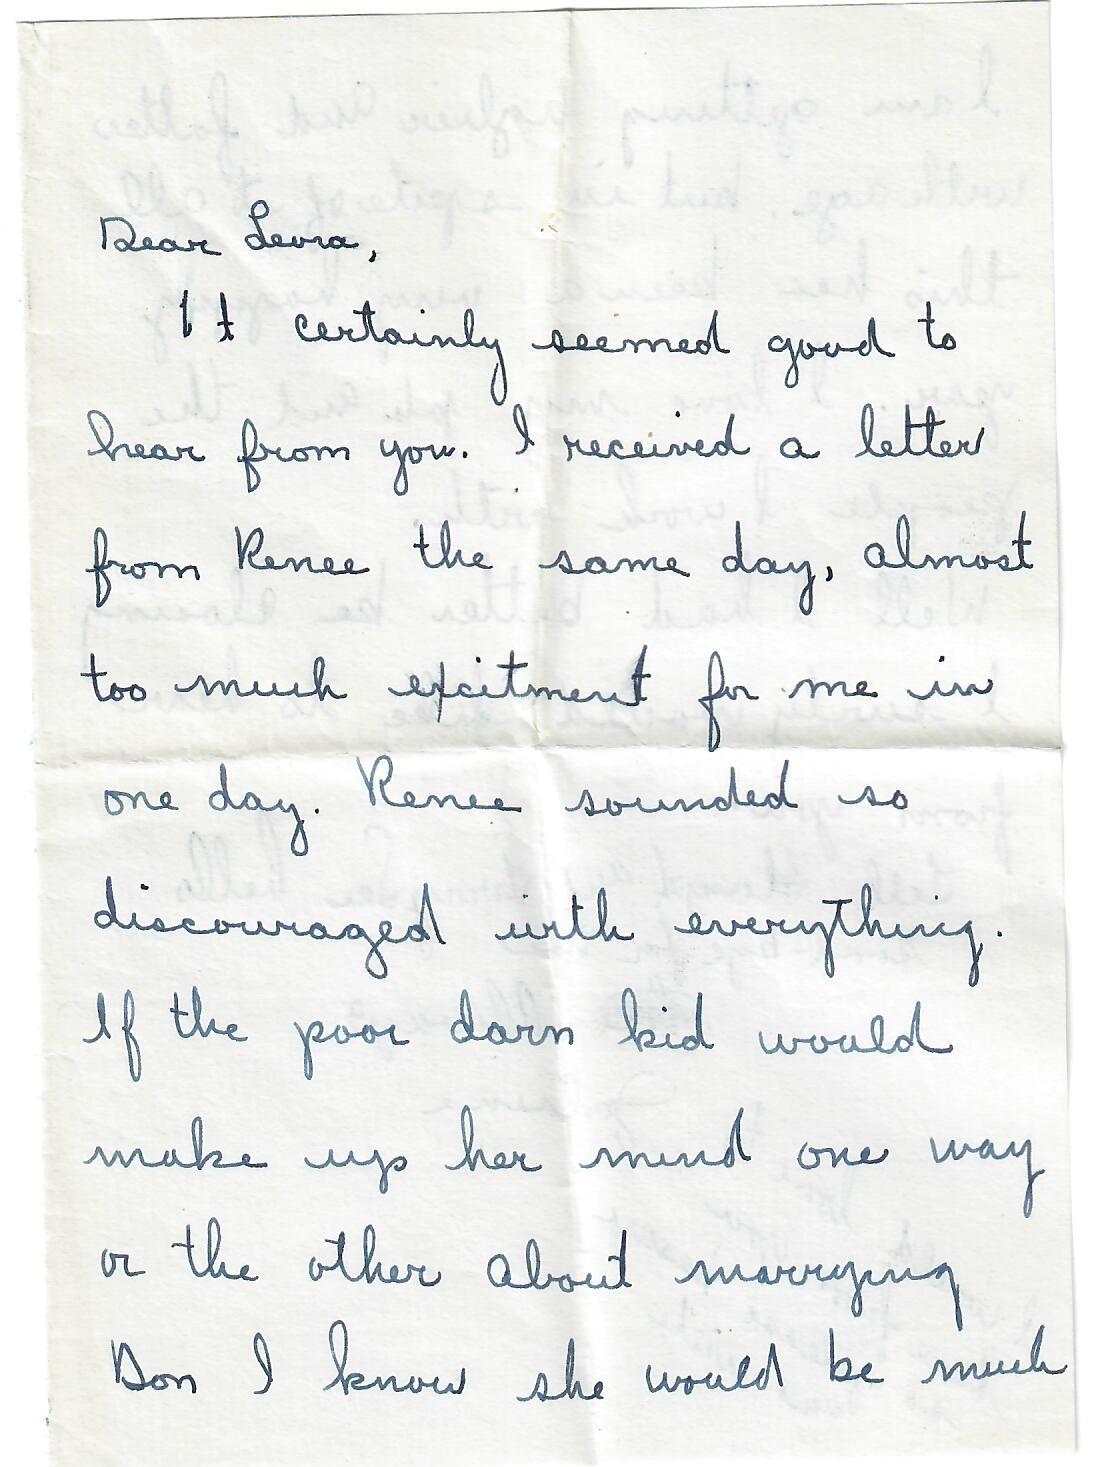 Dear Leora,
It certainly seemed good to
hear from you. I received a letter
from Renee the same day, almost
too much excitment for me in
one day. Renee sounded so
discouraged with everything.
If the poor darn kid would
make up her mind one way
or the other about marrying
Don I know she would be much